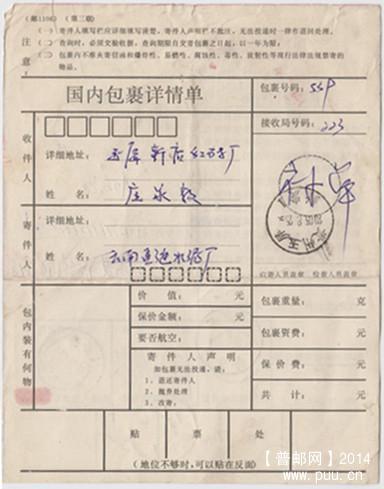 (邮1106) (第二联)
注意
(一) 寄件人填写栏应详细填写清楚，寄件人声明栏不批注，无法投递时一律作退回处理。
(二) 查询时，必须交验收据，查询期限自交寄包裹之日起，以一年为限。
(三) 包裹内不准夹寄信函和爆炸性、易燃性、腐蚀性、毒性、放射性等现行法律法规禁寄的物品。
国内包裹详情单
包裹号码：559
接收局号码：223
收件人
详细地址：
姓名：
寄件人
详细地址：
姓名：云南
收寄人员盖章 检查人员盖章
包内装有何物
价值： 元
保价金额： 元
要否航空：
寄件人声明
如包裹无法投递，请：
1. 退还寄件人
2. 抛弃处理
3. 改寄：
包裹重量： 克
包裹资费： 元
保价费： 元
共计： 元
贴票处
(地位不够时，可以贴在反面)
【普邮网】2014
www.puu.cn